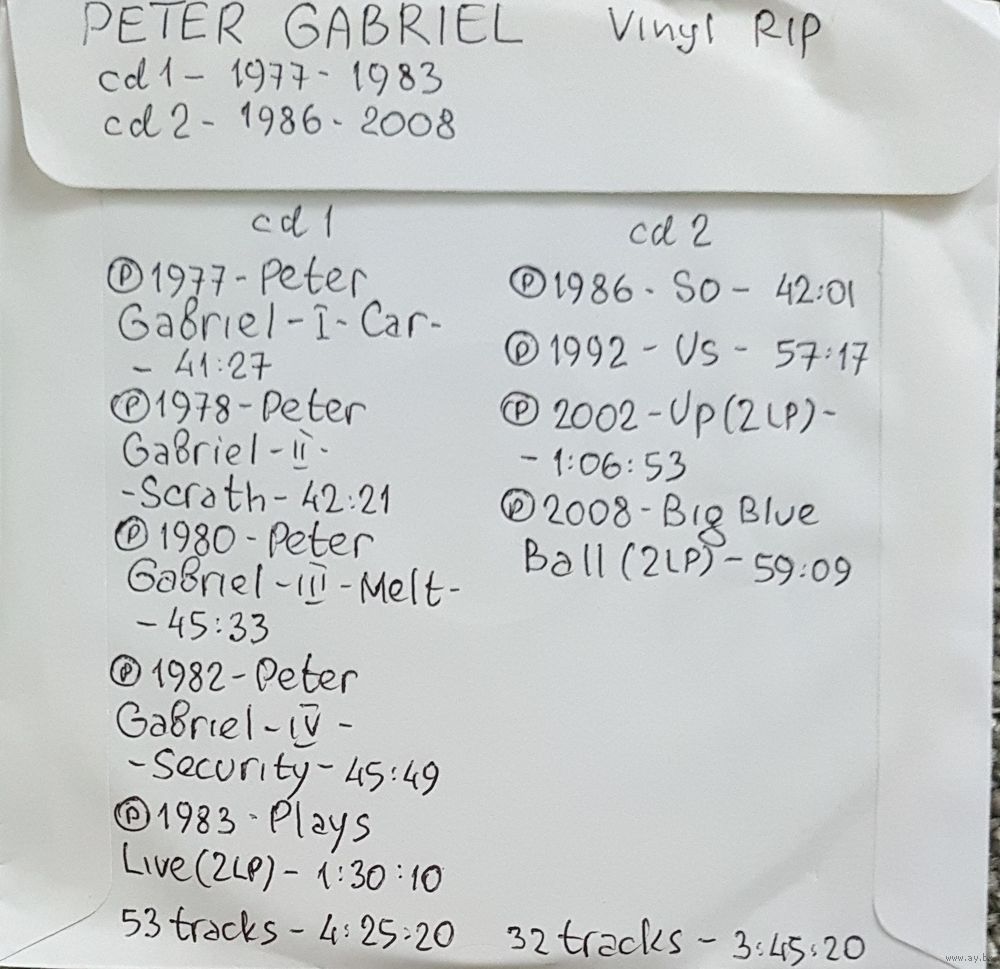 PETER GABRIEL Vinyl RIP
cd1 - 1977 - 1983
cd2 - 1986 - 2008
cd 1
Ⓟ1977 - Peter
Gabriel - I - Car -
- 41:27
Ⓟ1978 - Peter
Gabriel - II -
- Scrath - 42:21
Ⓟ1980 - Peter
Gabriel - III - Melt -
- 45:33
Ⓟ1982 - Peter
Gabriel - IV -
- Security - 45:49
Ⓟ1983 - Plays
Live (2LP) - 1:30:10
53 tracks - 4:25:20
cd 2
Ⓟ1986 - SO - 42:01
Ⓟ1992 - Us - 57:17
Ⓟ2002 - Up (2LP) -
- 1:06:53
Ⓟ2008 - Big Blue
Ball (2LP) - 59:09
32 tracks - 3:45:20